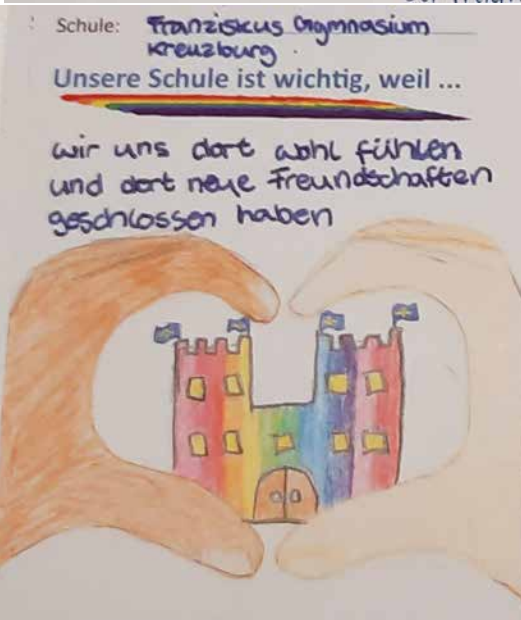 Schule: Franziskus Gymnasium
Kreuzburg.
Unsere Schule ist wichtig, weil ...
wir uns dort wohl fühlen
und dort neue Freundschaften
geschlossen haben